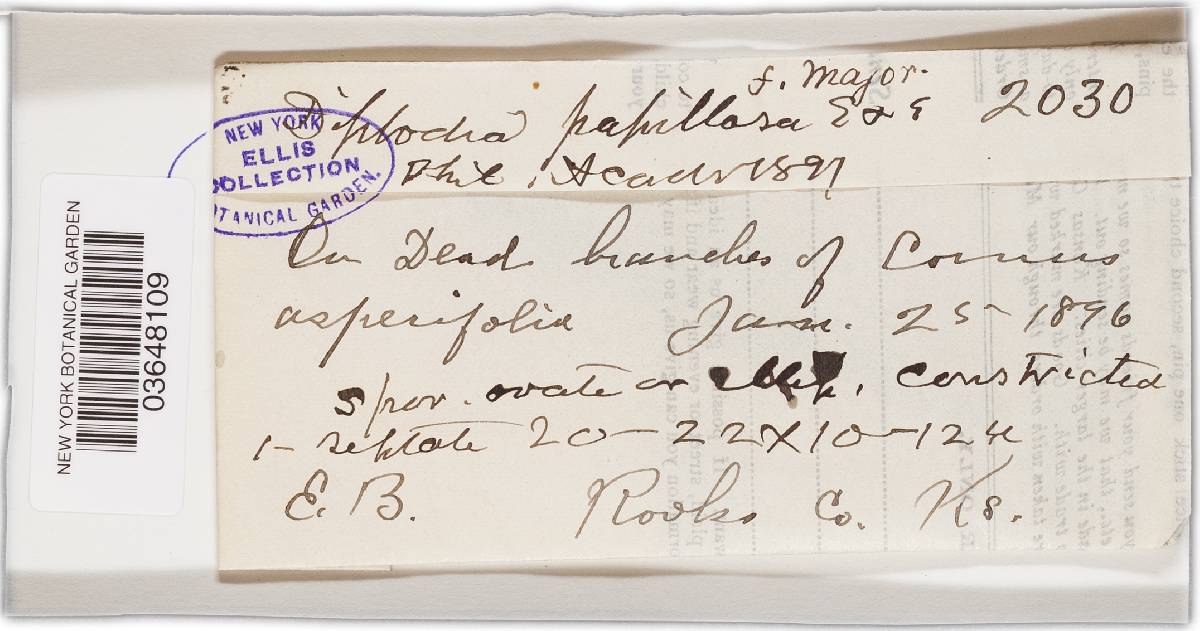 f. major.
Diplodia papillosa E & E 2030
Phil. Acad. 1897
NEW YORK
ELLIS
COLLECTION
BOTANICAL GARDEN.
On Dead branches of Cornus
asperifolia Jan. 25 - 1896
spor. ovate or ellip, constricted
1 - septate 20 - 22 x 10 - 12 u
E. B. Rooks Co. Ks.
NEW YORK BOTANICAL GARDEN
03648109